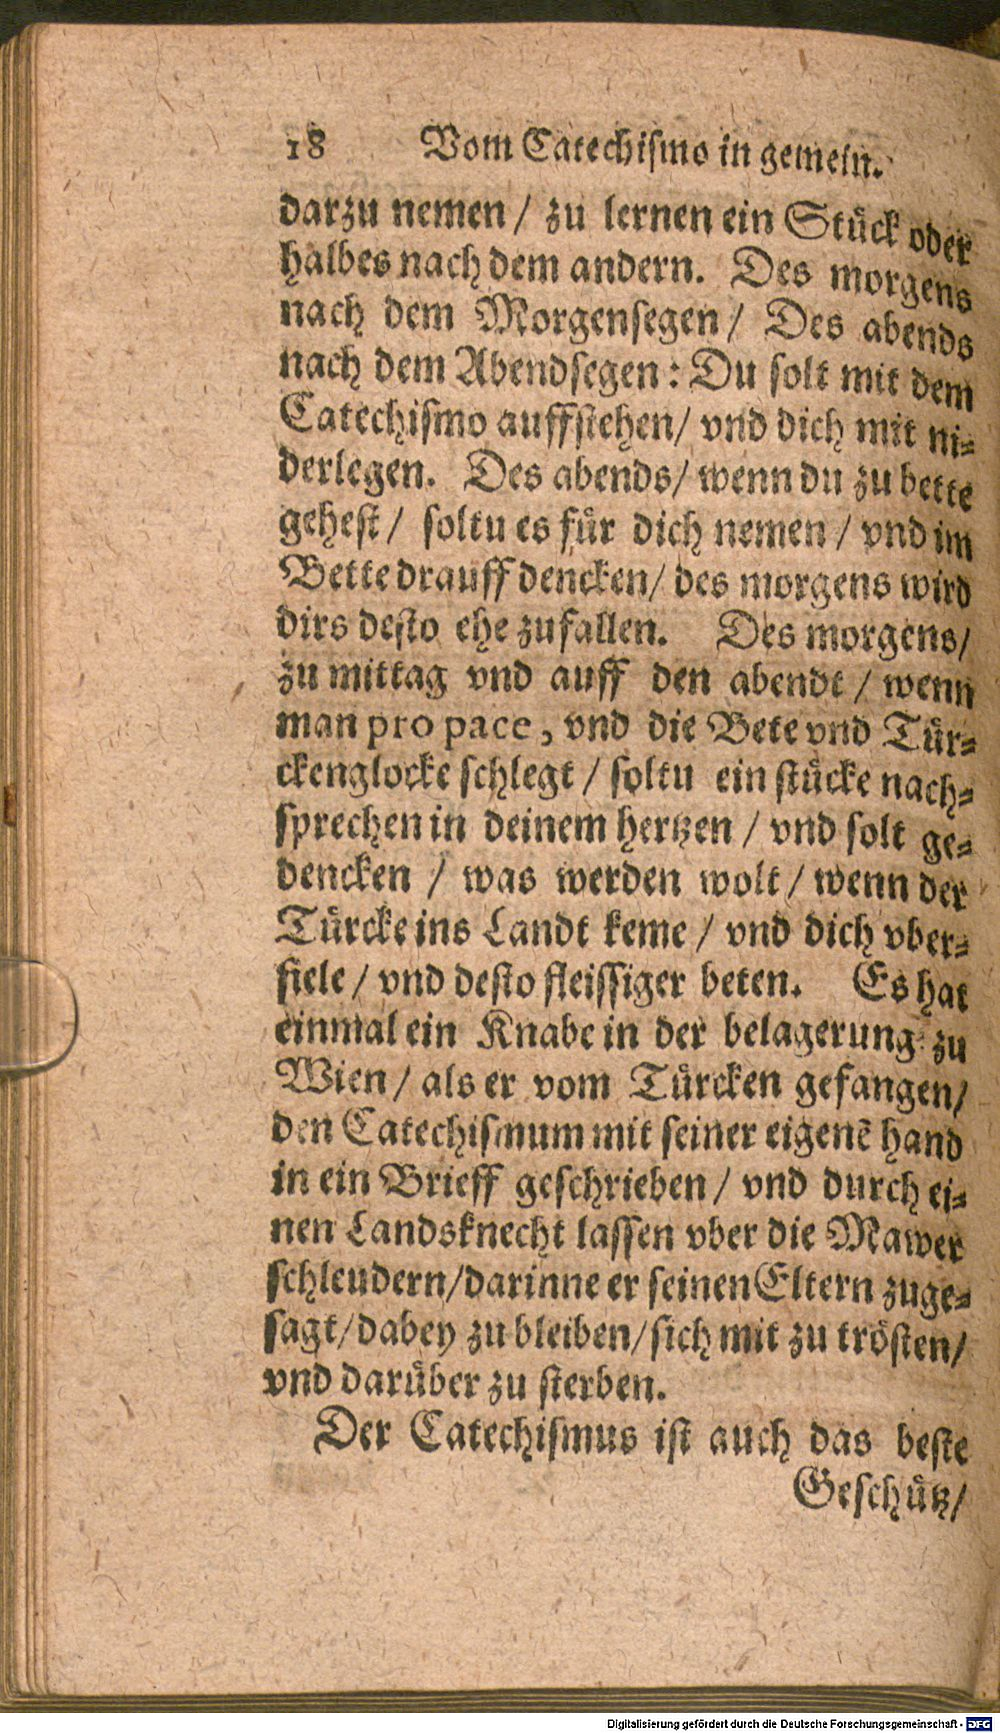 18 Vom Catechiſmo in gemein.
darzu nemen / zu lernen ein Stuͤck oder
halbes nach dem andern. Des morgens
nach dem Morgenſegen / Des abends
nach dem Abendſegen: Du ſolt mit dem
Catechiſmo auffſtehen / vnd dich mit ni⸗
derlegen. Des abends / wenn du zu bette
geheſt / ſoltu es fuͤr dich nemen / vnd im
Bette drauff dencken / des morgens wird
dirs deſto ehe zufallen. Des morgens /
zu mittag vnd auff den abendt / wenn
man pro pace, vnd die Bete vnd Tuͤr⸗
ckenglocke ſchlegt / ſoltu ein ſtuͤcke nach⸗
ſprechen in deinem hertzen / vnd ſolt ge⸗
dencken / was werden wolt / wenn der
Tuͤrcke ins Landt keme / vnd dich vber⸗
fiele / vnd deſto fleiſſiger beten. Es hat
einmal ein Knabe in der belagerung zu
Wien / als er vom Tuͤrcken gefangen /
den Catechiſmum mit ſeiner eigenẽ hand
in ein Brieff geſchrieben / vnd durch ei⸗
nen Landsknecht laſſen vber die Mawer
ſchleudern / darinne er ſeinen Eltern zuge⸗
ſagt / dabey zu bleiben / ſich mit zu troͤſten /
vnd daruͤber zu ſterben.
Der Catechiſmus iſt auch das beſte
Geſchuͤtz /
Digitalisierung gefördert durch die Deutsche Forschungsgemeinschaft - DFG